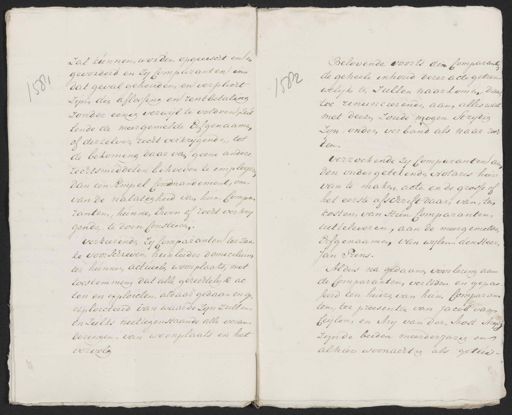 1581
zal kunnen worden opgeeischt en
gevorderd en zy Comparanten in
dat geval gehouden en verpligt
zyn die aflossing en rentbetaling
zonder eenig verwyl te voldoen
lende de meergemelde Erfgenaame,
of derzelver recht verkrygende, tot
de bekoming daar van geene andere
rechtsmiddelen behoeven te employeeren
dan een simpel Commandement, om
van de nalatigheid van hun Compa-
ranten, hunne Erven of recht verkry-
gende te doen Consteren.
verklarende zy Comparanten ten
te voorschreven hun lieder domicilium
ter hunner actueele woonplaats, met
toestemming dat alle gerechtelyke ac
ten en exploicten, aldaar gedaan en
geexploicteerd van waarde zyn zullen
en zulks niettegenstaande alle veran-
deringen van woonplaats en het
vervolg
1582
Belovende voorts de Comparanten
de geheele inhoud dezer acte getrou
welyk te zullen naarkomen, daar
toe renuncierende, aan alles wat
met deeze zoude mogen stryden
zyn onder verband als naar rech
ten.
verzoekende zy Comparanten
den ondergeteekende Notaris hier
van te maken, acte en de grosse of
het eerste afschrift daar van, ten
kosten van hun Comparanten
uitteleveren, aan de meergemelde
Erfgenaamen, van wylen den Heer
Jan Prins.
Aldus na gedaane voorlezing aan
de Comparanten, verleden en gepas
seerd ten huize van hun Comparan
ten, ter presentie van Jacob van
Ceylon, en Ary van der
zynde beiden meerderjarig en
alhier woonachtig als getui-